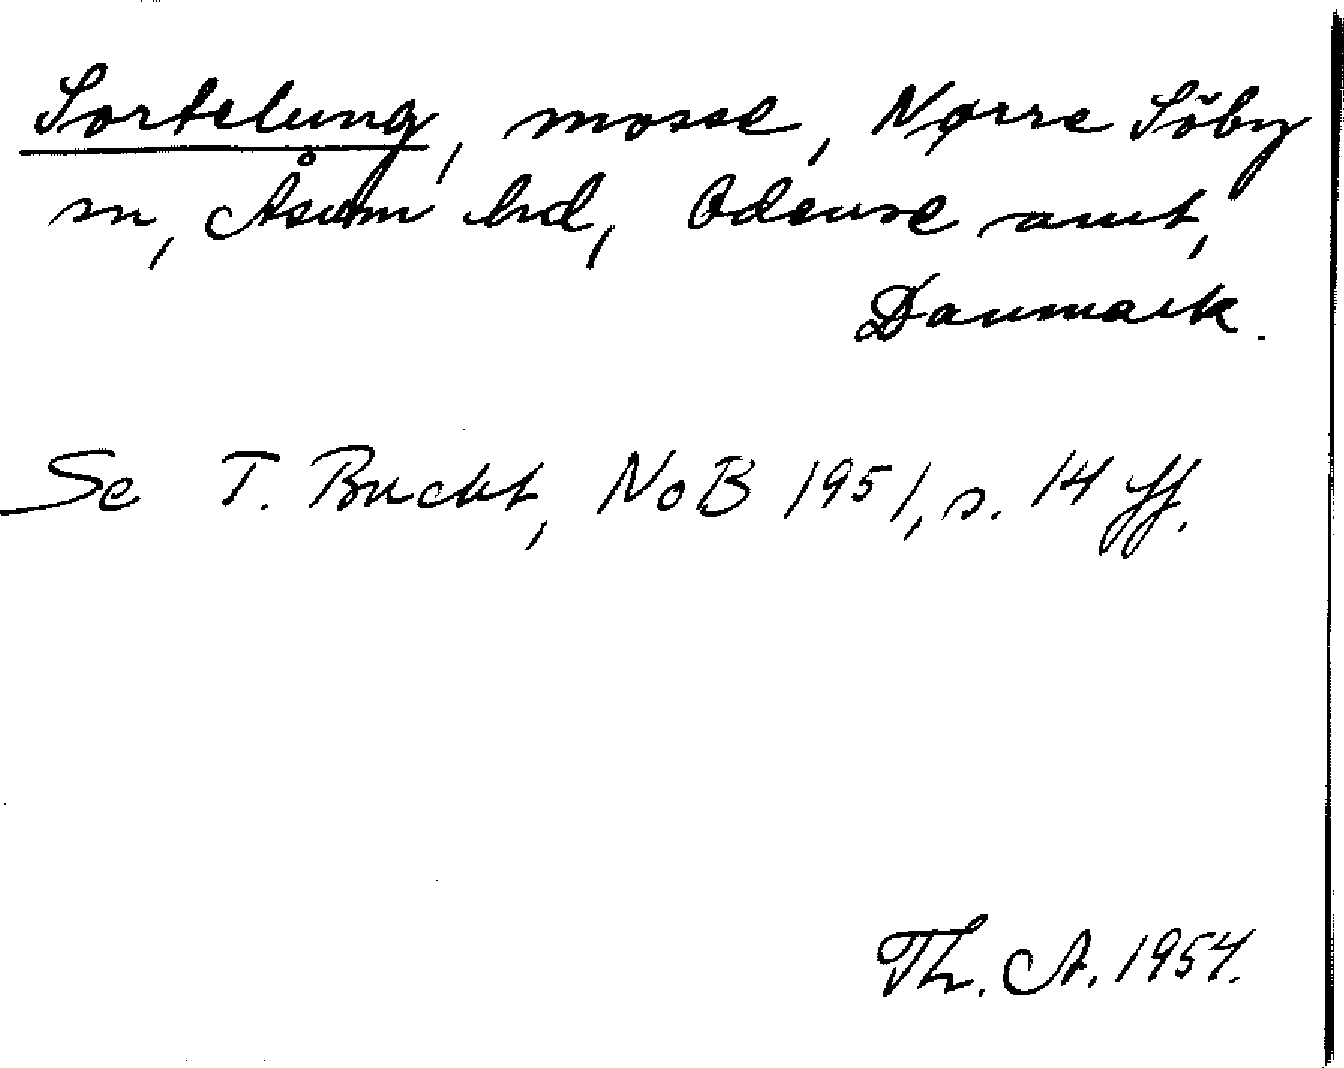 Sortelung, mosse, Nørre Söby
sn, Åsum hrd, Odense amt,
Danmark.
Se T. Bucht, NoB 1951, s. 14 ff.
Th. A. 1954.